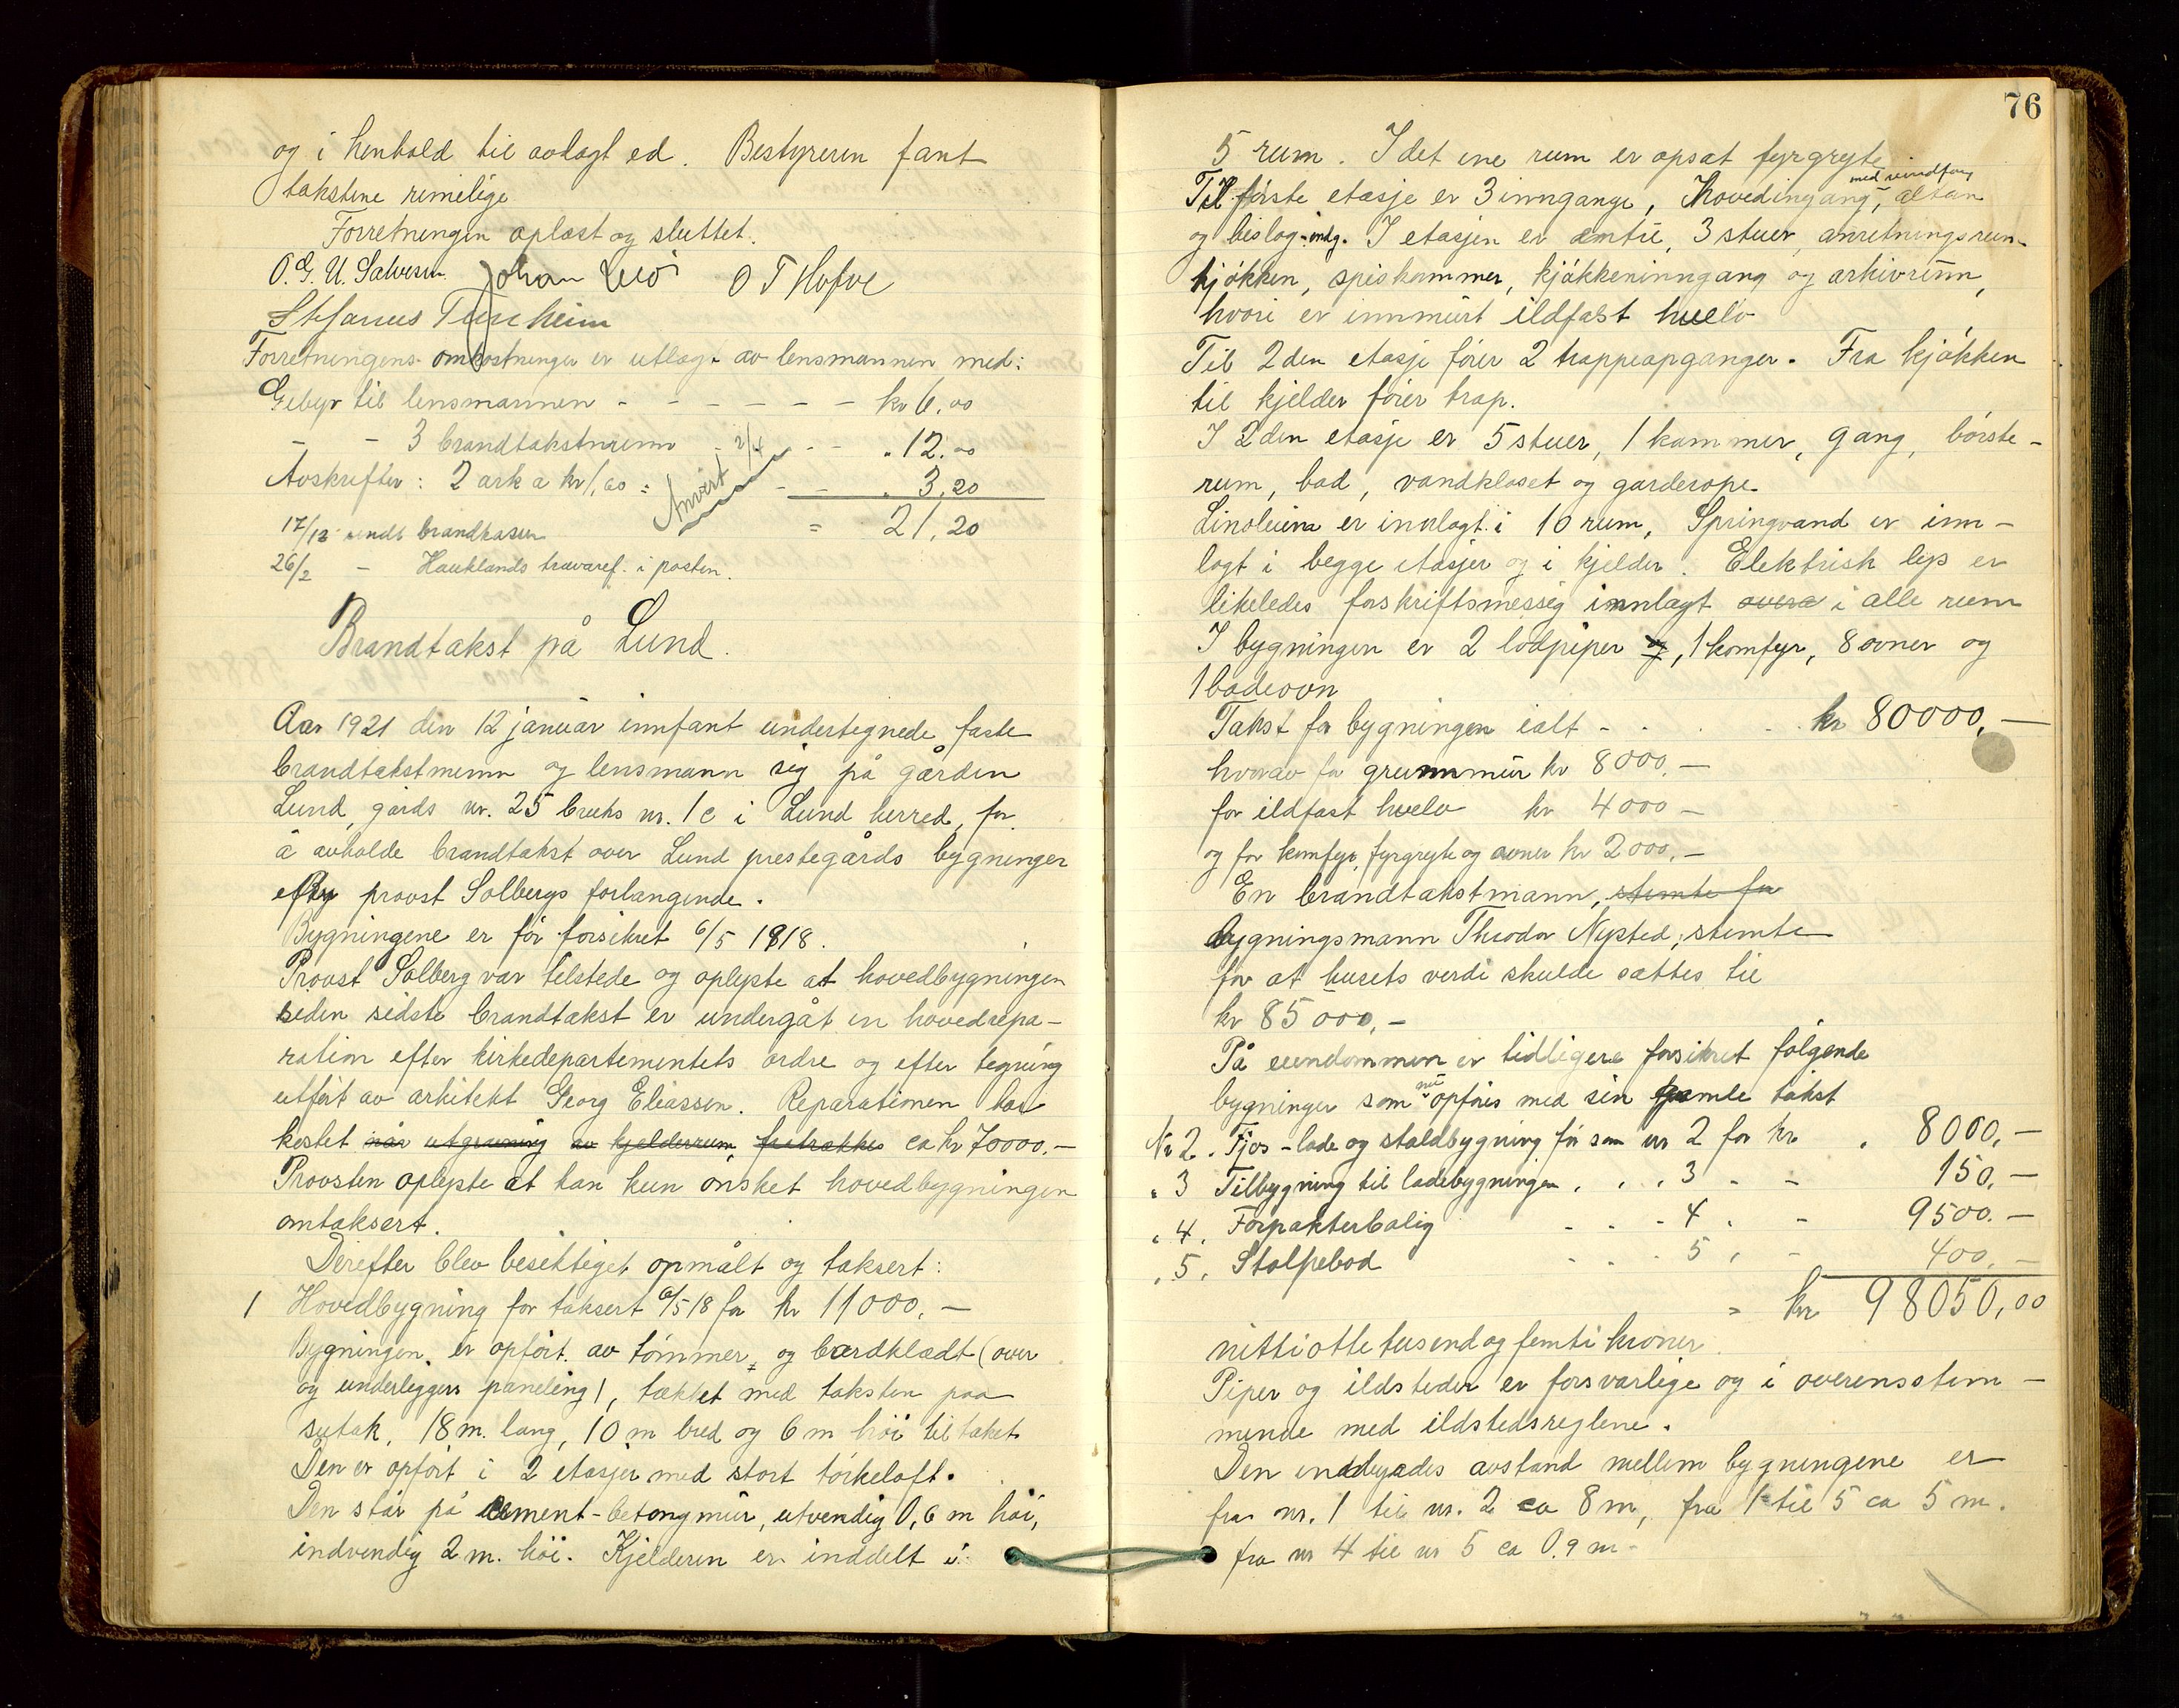 og i henhold til avlagt ed. Bestyreren fant
takstene rimelige
Forretningen oplæst og sluttet.
O. G. U. Salvesen. Johan O T Hofve
Stefanus Tunheim
Forretningens omkostninger er utlagt av lensmannen med:
Gebyr til lensmannen - - - - - - kr 6,00
- - 3 brandtakstmenn - - - " 12.00
Avskrifter: 2 ark a kr 1,60 = - - " 3,20
Anvist 2/4
17/12 sendt brandkassen = 21,20
26/2 - Hauklands i posten.
Brandtakst på Lund.
Aar 1921 den 12 januar innfant undertegnede faste
brandtakstmenn og lensmann sig på gården
Lund, gårds nr. 25 bruks nr. 1c i Lund herred, for
å avholde brandtakst over Lund prestegårds bygninger
efter provst Solbergs forlangende.
Bygningene er før forsikret 6/5 1918.
Provst Solberg var tilstede og oplyste at hovedbygningen
siden sidste brandtakst er undergåt en hovedrepa-
ration efter kirkedepartementets ordre og efter tegning
utført av arkitekt Georg Eliassen. Reparationen har
kostet når utgravning av kjelderrum fratrækkes ca kr 70000.-
Provsten oplyste at han kun ønsket hovedbygningen
omtaksert.
Derefter blev besiktiget opmålt og taksert:
1 Hovedbygning før taksert 6/5 18 for kr 11000.-
Bygningen er opført av tømmer, og bordklædt (over
og underleggers paneling), tækket med taksten paa
sutak, 18 m. lang, 10 m bred og 6 m høi til taket
Den er opført i 2 etasjer med stort tørkeloft.
Den står på cement-betongmur, utvendig 0,6 m høi,
indvendig 2 m. høi. Kjelderen er inddelt i
76
5 rum. I det ene rum er opsat fyrgryte
med vindfang
Til første etasje er 3 innganger, hovedingang, altan
og bislag-indg. I etasjen er entré, 3 stuer, anretningsrum
kjøkken, spiskammer, kjøkkeninngang og arkivrum,
hvori er innmurt ildfast hvelv
Til 2den etasje fører 2 trappeopganger. Fra kjøkken
til kjelder fører trap.
I 2den etasje er 5 stuer, 1 kammer, gang, børste-
rum, bad, vandkloset og garderope
Linoleum er innlagt i 10 rum, Springvand er inn-
lagt i begge etasjer og i kjelder. Elektrisk lys er
likeledes forskriftsmessig innlagt overa i alle rum
I bygningen er 2 lodpiper og, 1 komfyr, 8 ovner og
1 badeovn
Takst for bygningen ialt - - - kr 80000,-
hvorav for grunnmur kr 8000.-
for ildfast hvelv kr 4000-
og for komfyr, fyrgryte og ovner kr 2000,-
En brandtakstmann, stemte for
bygningsmann Theodor Nysted, stemte
for at husets verdi skulde sættes til
kr 85000,-
På eiendommen er tidligere forsikret følgende
bygninger som nu opføres med sin gamle takst
Nr 2. Fjøs-lade og staldbygning før som nr 2 for kr. " 8000,-
" 3 Tilbygning til ladebygningen " " " 3 - - 150,-
" 4. Forpakterbolig - - - 4 " - 9500.-
" 5. Stolpebod - - - 5 " - 400.-
= kr 98050,00
nittiotte tusend og femti kroner
Piper og ildsteder er forsvarlige og i overensstem-
mende med ildstedsreglene.
Den indbyrdes avstand mellem bygningene er
fra nr. 1 til nr. 2 ca 8 m, fra 1 til 5 ca 5 m.
fra nr 4 til nr 5 ca 0.9 m-